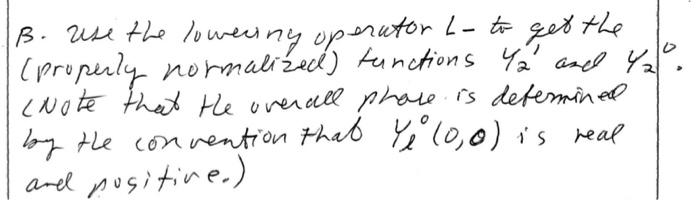 B. Use the lowering operator L- to get the
(properly normalized) functions Y₂¹ and Y₂⁰.
(Note that the overall phase is determined
by the convention that Yₗ⁰(0,0) is real
and positive.)